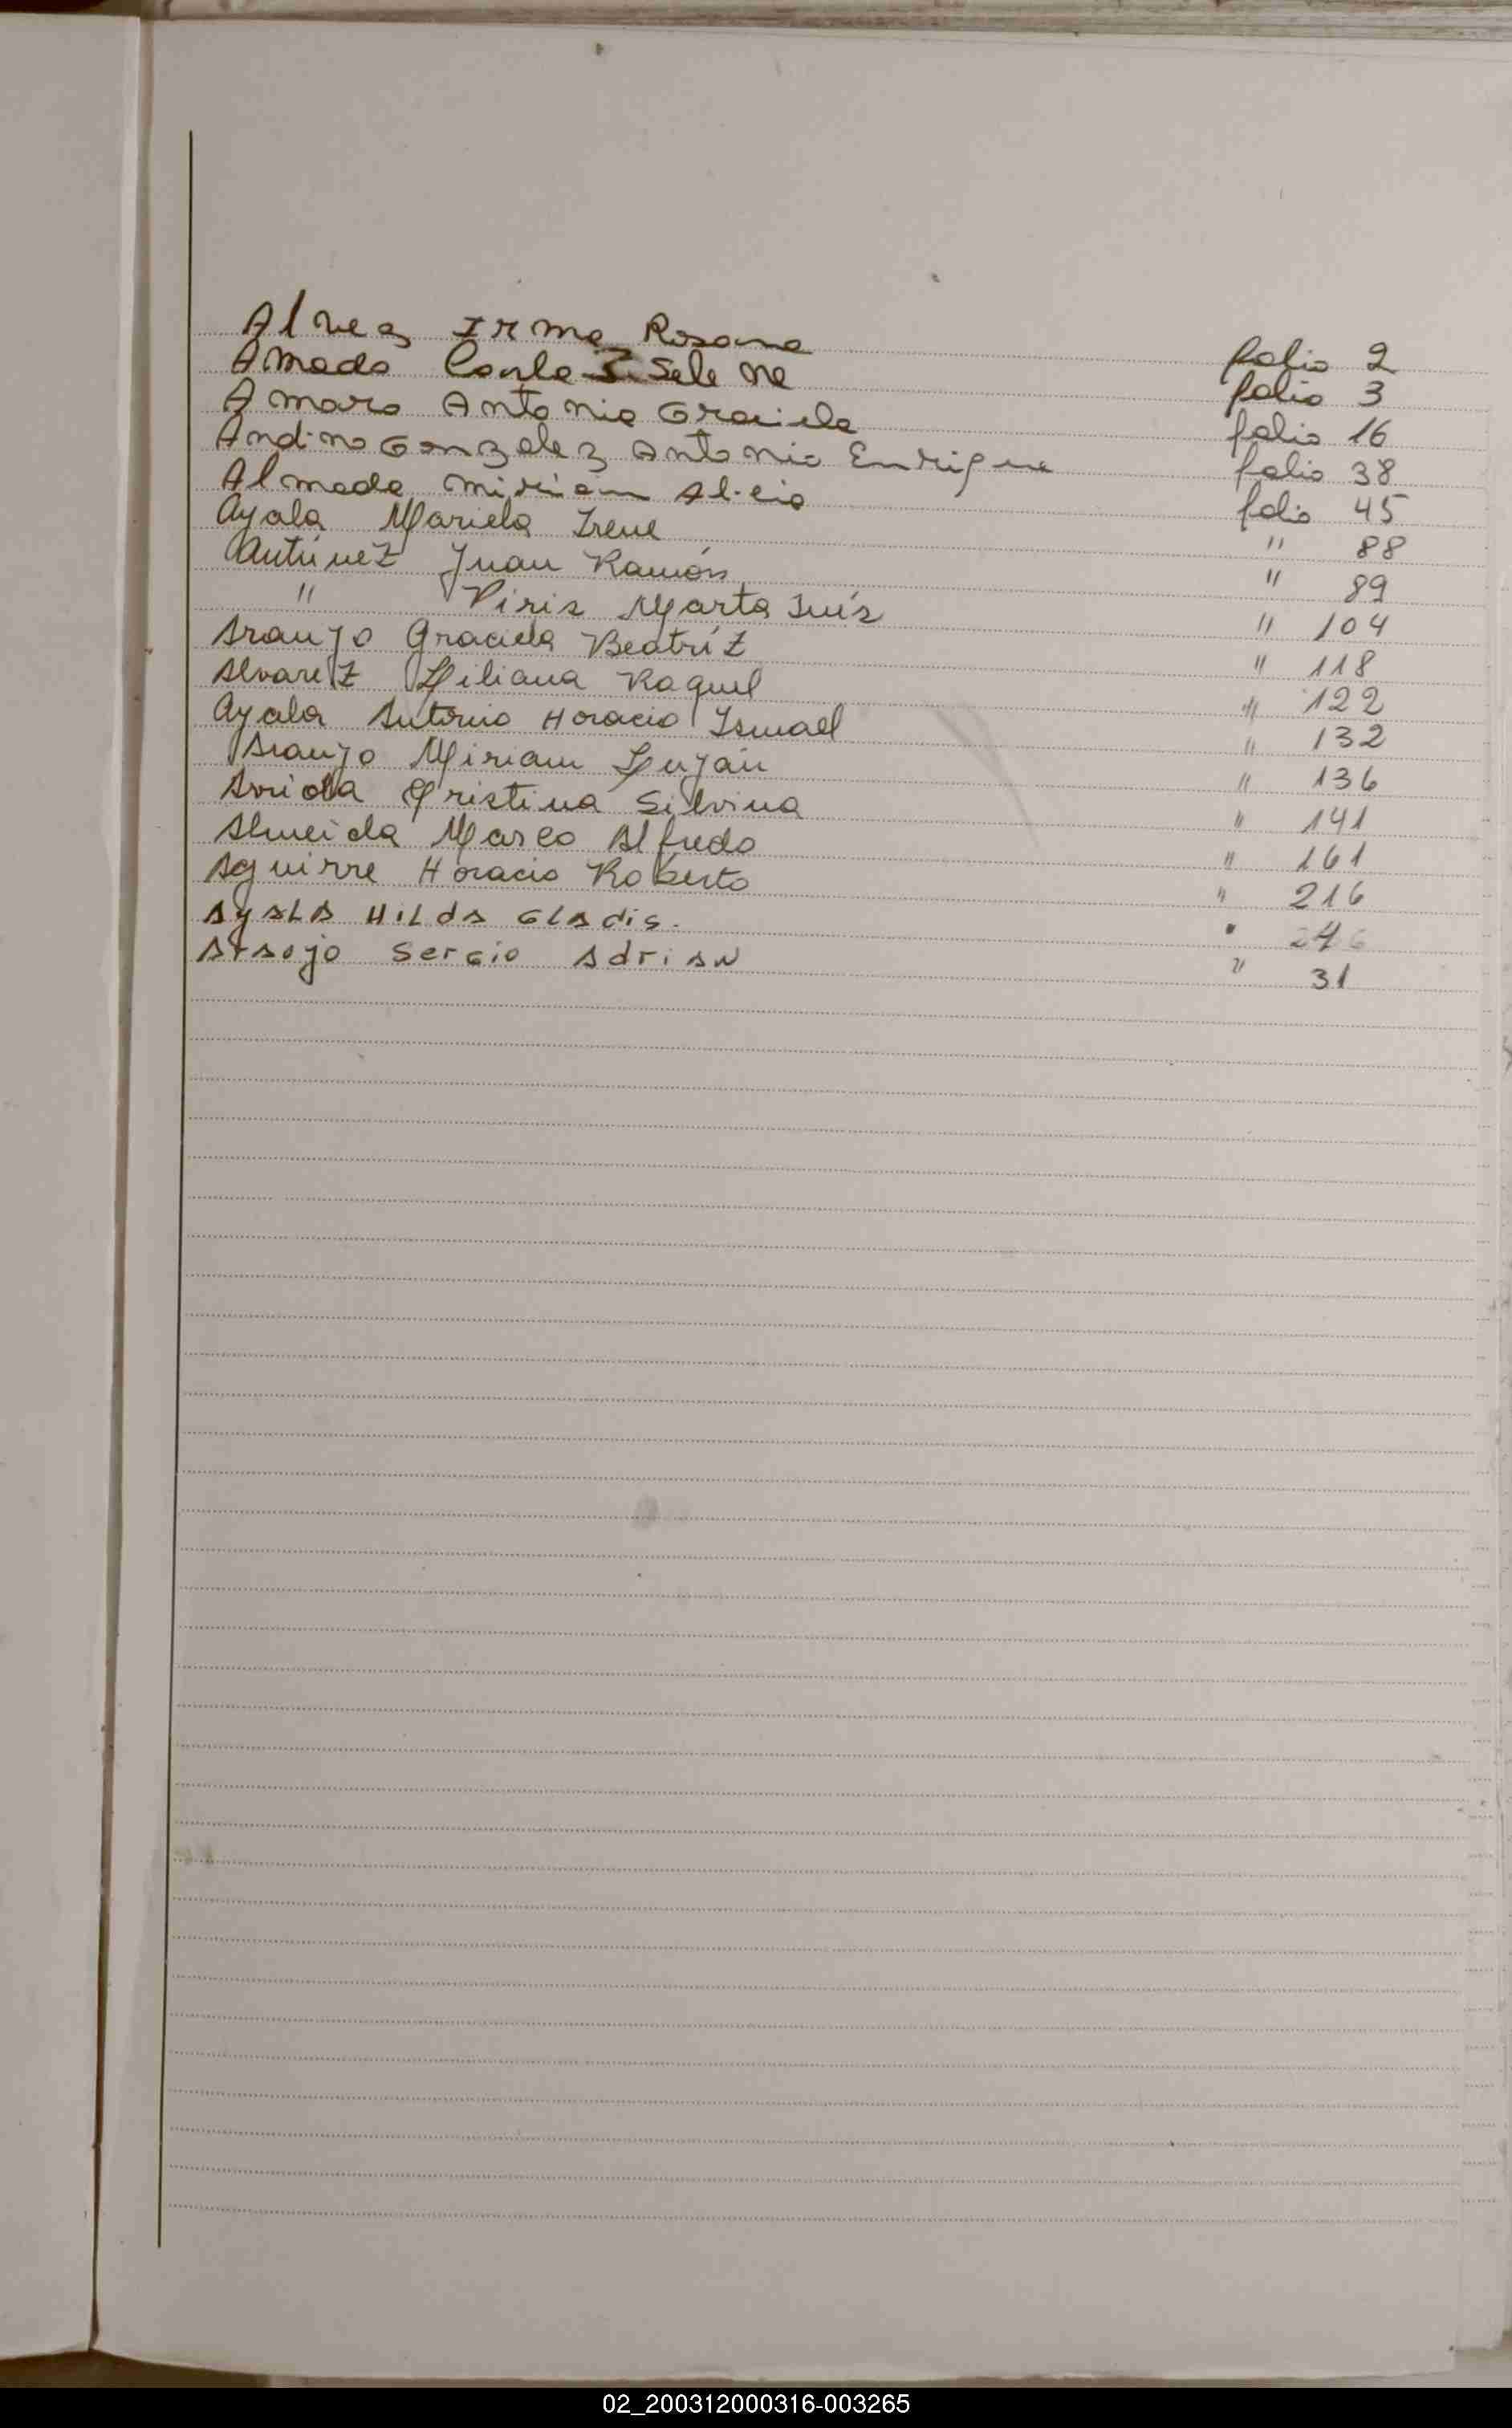 Alvez Irma Rosana folio 2
Amado Carla Selene folio 3
Amaro Antonia Graciela folio 16
Andino Gonzalez Antonio Enrique folio 38
Almada Miriam Alicia folio 45
Ayala Mariela Irene " 88
Antúnez Juan Ramón " 89
" Piris Marta Inés " 104
Araujo Graciela Beatríz " 118
Alvarez Liliana Raquel " 122
Ayala Antonio Horacio Ismael " 132
Araujo Miriam Luján " 136
Arriola Cristina Silvina " 141
Almeida Marco Alfredo " 161
Aguirre Horacio Roberto " 216
Ayala Hilda Gladis. " 246
Araojo Sergio Adrian " 31
02_200312000316-003265